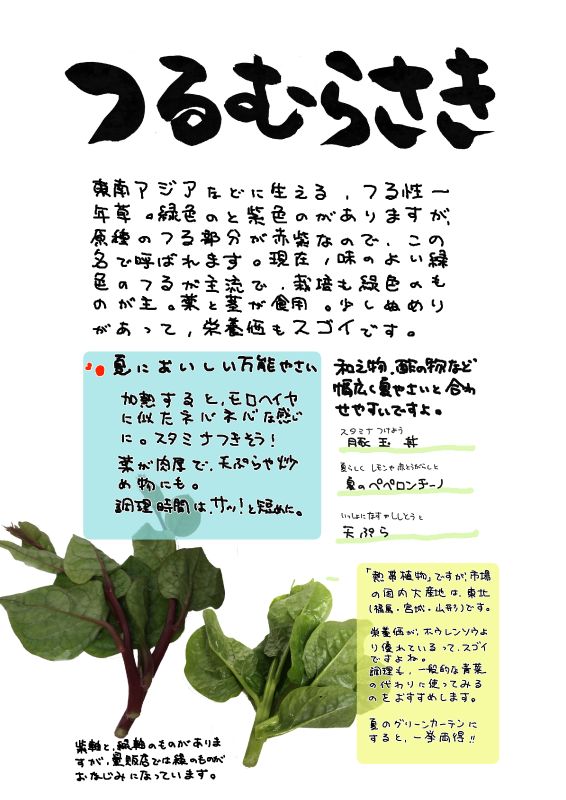 つるむらさき
東南アジアなどに生える、つる性一
年草。緑色のと紫色のがありますが、
原種のつる部分が赤紫なので、この
名で呼ばれます。現在、味のよい緑
色のつるが主流で、栽培も緑色のも
のが主。葉と茎が食用。少しぬめり
があって、栄養価もスゴイです。
夏においしい万能やさい
加熱すると、モロヘイヤ
に似たネバネバな感じ
に。スタミナつきそう！
葉が肉厚で、天ぷらや炒
め物にも。
調理時間は、サッ！と短めに。
和え物、酢の物など
幅広く夏やさいと合わ
せやすいですよ。
スタミナつけよう
豚玉丼
夏らしく レモンや赤とうがらしと
夏のペペロンチーノ
いっしょになすやししとうと
天ぷら
「熱帯植物」ですが、市場
の国内大産地は、東北
（福島・宮城・山形）です。
栄養価が、ホウレンソウよ
り優れているって、スゴイ
ですよね。
調理も、一般的な青菜
の代わりに使ってみる
のをおすすめします。
夏のグリーンカーテンに
すると、一挙両得！！
紫軸と、緑軸のものがありま
すが、量販店では緑のものが
おなじみになっています。